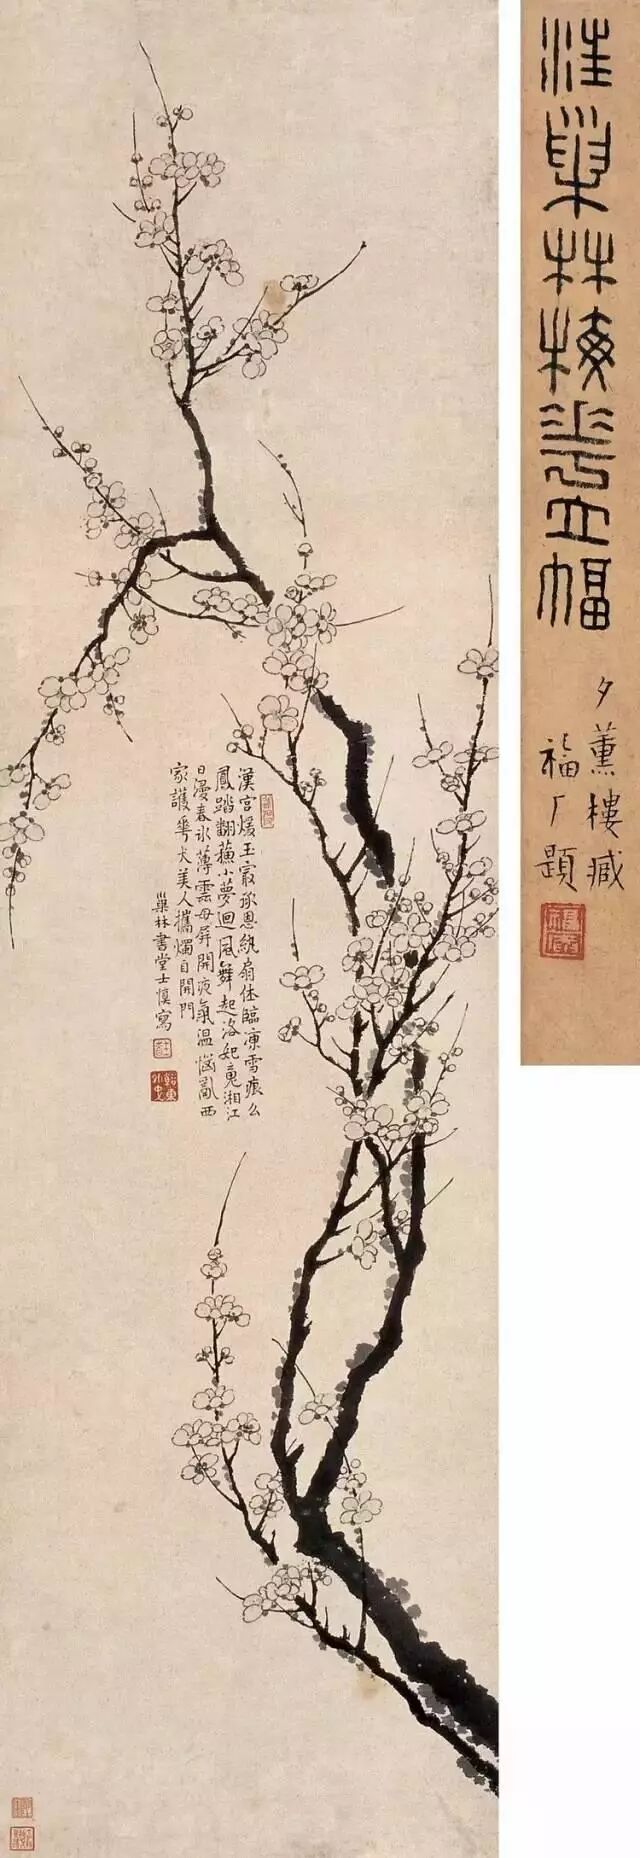 漢宮煖玉㝡承恩紈扇休臨凍雪痕么
鳳踏翻蘓小夢迴風舞起洛妃魂湘江
日漫春冰薄雲母屏開夜氣溫惱亂西
家護華犬美人攜燭自開門
巢林書堂士慎寫
汪巢林梅華立幅
夕薰樓臧
福厂題